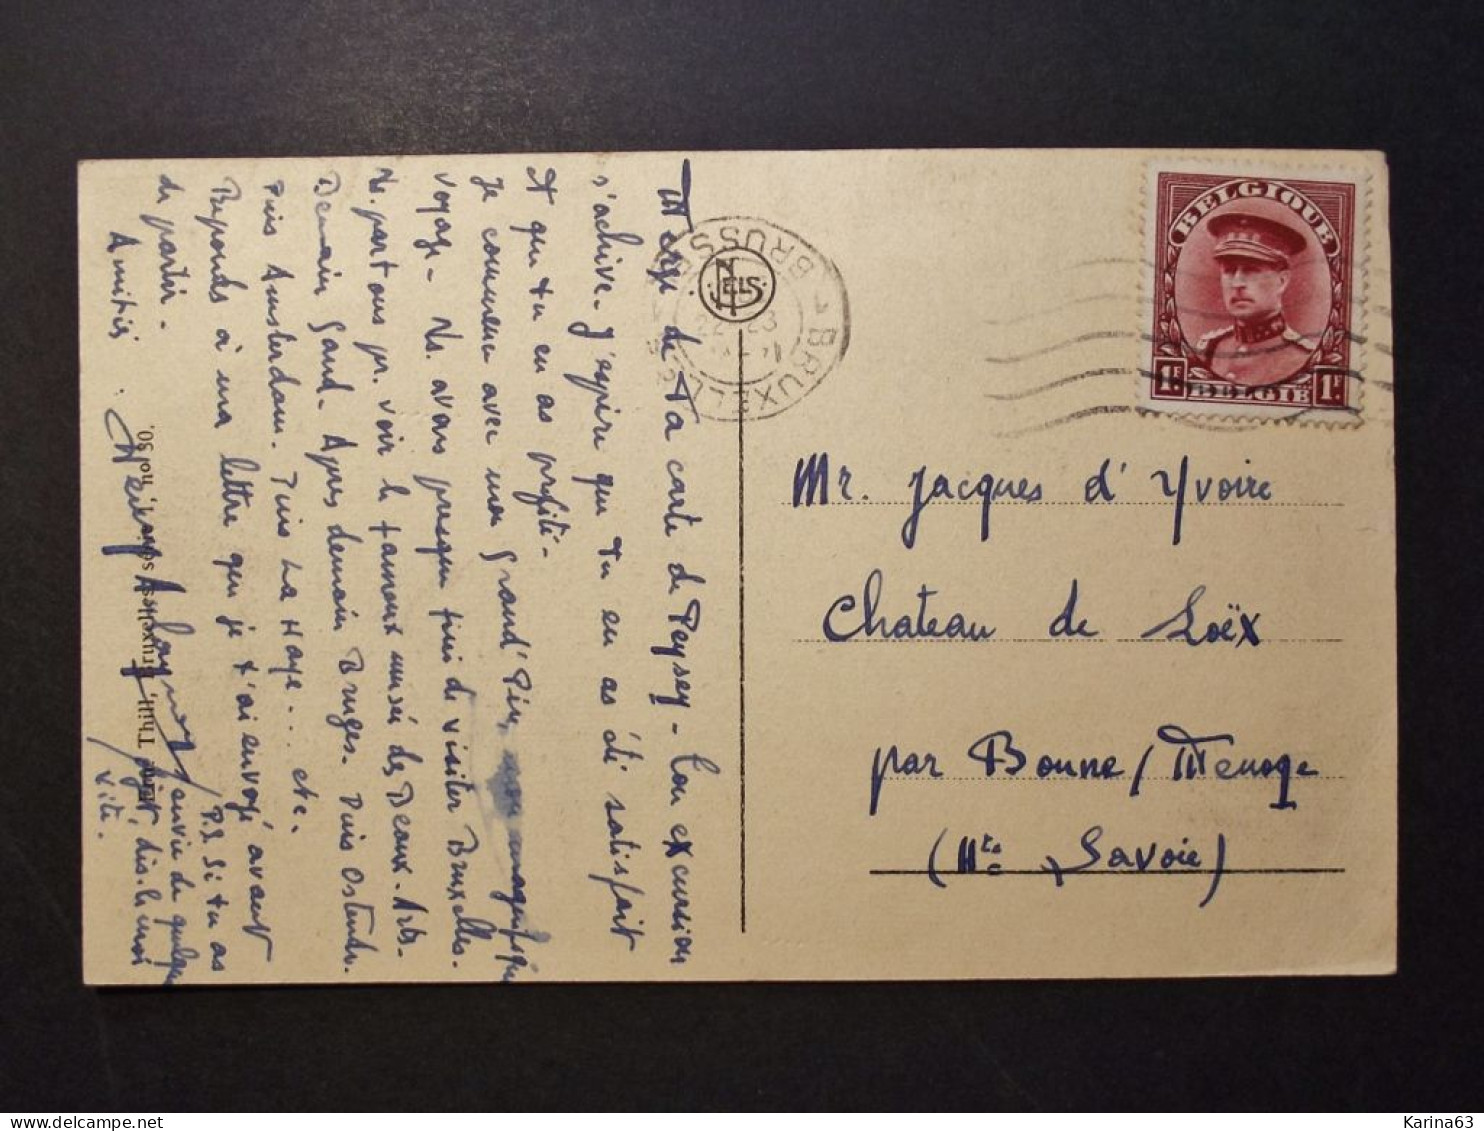 Merci de ta carte de Peysey - Ton excursion
s'achève. J'espère que tu en as été satisfait
et que tu en as profité -
Je commence avec mon Grand'Père, un magnifique
voyage - Ns. avons presque fini de visiter Bruxelles.
Ns. partons pr. voir le fameux musée des Beaux-Arts.
Demain Gand. Après demain Bruges. Puis Ostende.
Puis Amsterdam. Puis La Haye... etc.
Réponds à ma lettre que je t'ai envoyé avant
de partir.
Amitiés.
P.S. Si tu as
envie de quelque
objet, dis-le moi
vite.
Ern. Thill, Bruxelles, série, no. 30.
NELS
BRUXELLES
BRUSSEL
BELGIQUE
1F BELGIË 1F
Mr. Jacques d'Yvoire
Chateau de Loëx
par Bonne, Menoge
(Hte Savoie)
Karina63